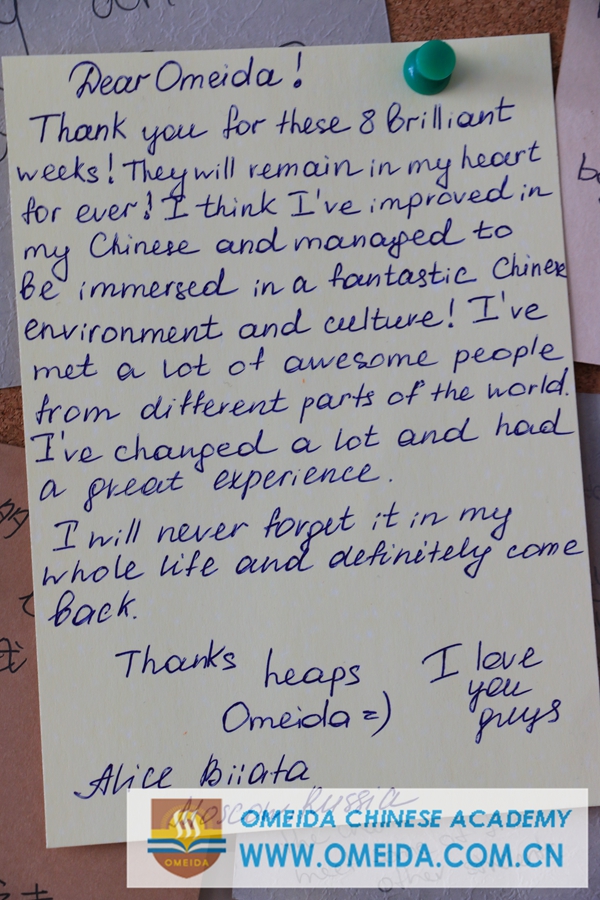 Dear Omeida!
Thank you for these 8 Brilliant
weeks! They will remain in my heart
for ever! I think I've improved in
my Chinese and managed to
be immersed in a fantastic Chinese
environment and culture! I've
met a lot of awesome people
from different parts of the world.
I've changed a lot and had
a great experience.
I will never forget it in my
whole life and definitely come
back.
Thanks heaps
Omeida =)
I love
you
guys
Alice Biiata
Moscow Russia
OMEIDA
OMEIDA CHINESE ACADEMY
WWW.OMEIDA.COM.CN